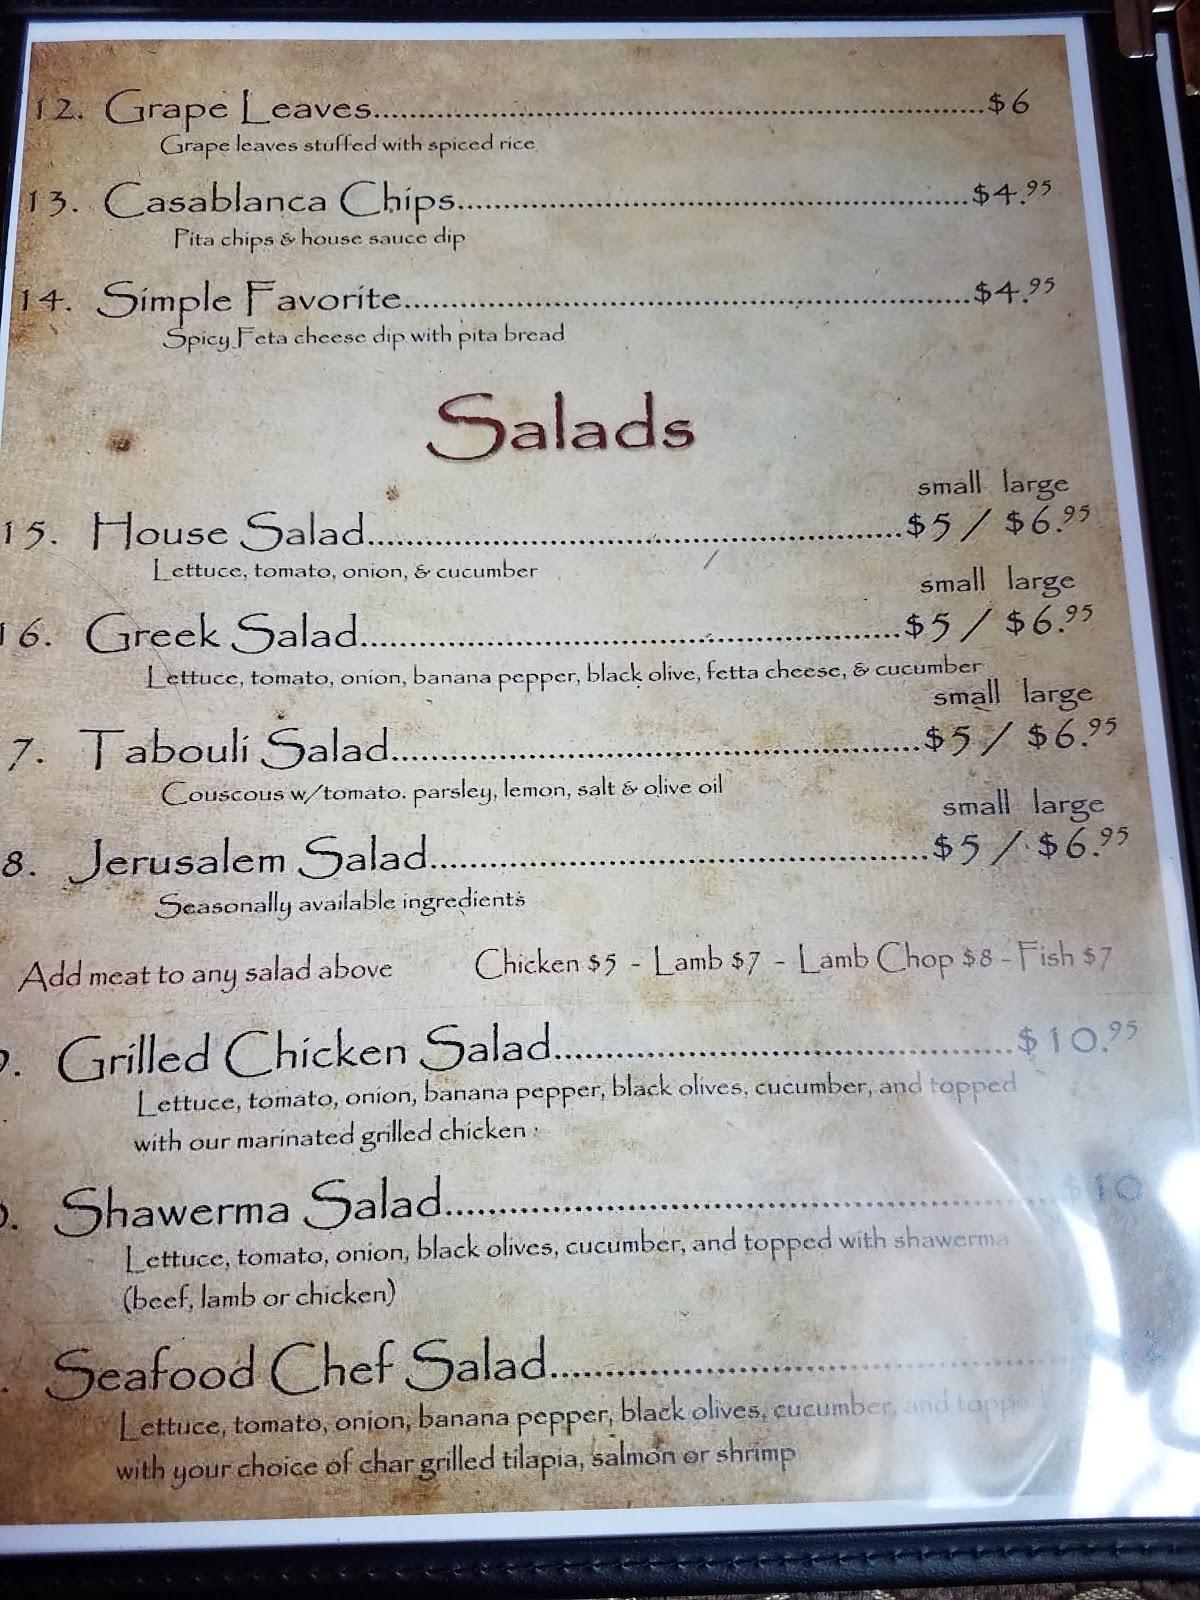 12. Grape Leaves..........$6
Grape leaves stuffed with spiced rice
13. Casablanca Chips..........$4.95
Pita chips & house sauce dip
14. Simple Favorite..........$4.95
Spicy Feta cheese dip with pita bread
Salads
small large
15. House Salad..........$5 / $6.95
Lettuce, tomato, onion, & cucumber
small large
16. Greek Salad..........$5 / $6.95
Lettuce, tomato, onion, banana pepper, black olive, fetta cheese, & cucumber
small large
7. Tabouli Salad..........$5 / $6.95
Couscous w/tomato. parsley, lemon, salt & olive oil
small large
8. Jerusalem Salad..........$5 / $6.95
Seasonally available ingredients
Add meat to any salad above Chicken $5 - Lamb $7 - Lamb Chop $8 - Fish $7
. Grilled Chicken Salad..........$10.95
Lettuce, tomato, onion, banana pepper, black olives, cucumber, and topped
with our marinated grilled chicken
. Shawerma Salad..........$10
Lettuce, tomato, onion, black olives, cucumber, and topped with shawerma
(beef, lamb or chicken)
. Seafood Chef Salad..........
Lettuce, tomato, onion, banana pepper, black olives, cucumber, and topped
with your choice of char grilled tilapia, salmon or shrimp